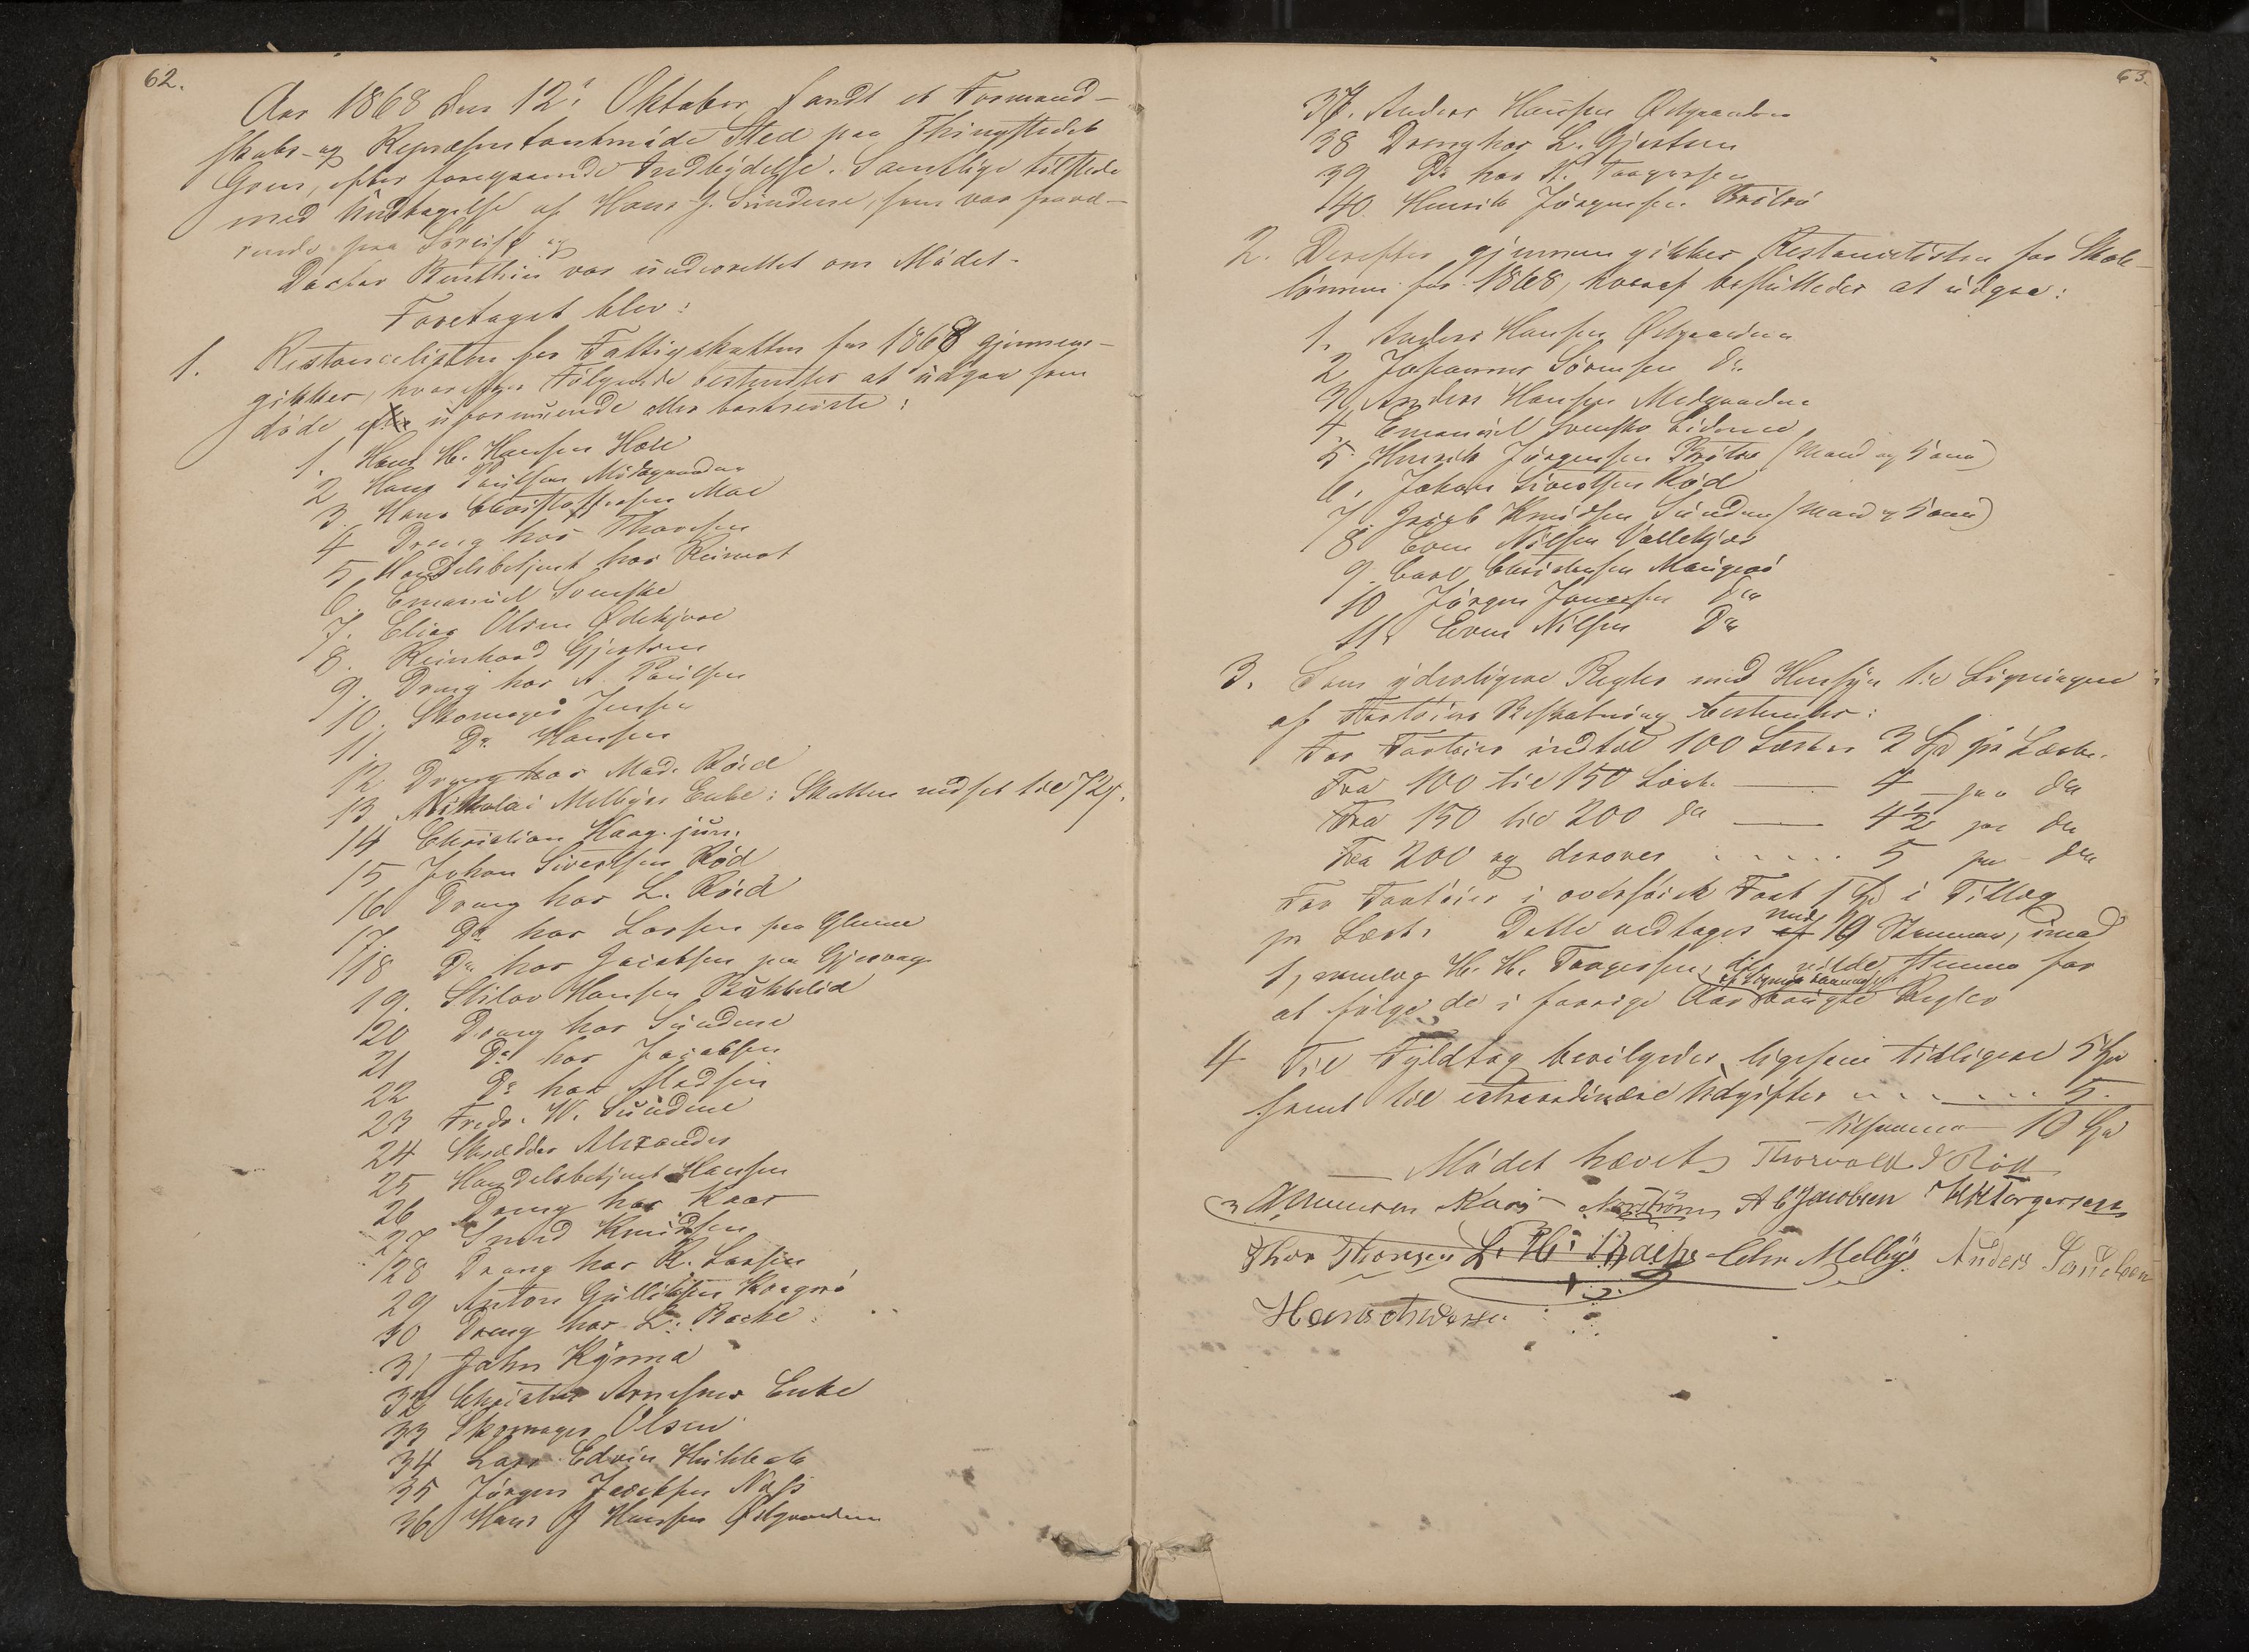 62.
Aar 1868 den 12te Oktober fandt et Formand-
skabs- og Repræsentantmøde Sted paa Thingstedet
Grem, efter foregaaende Indbydelse. Samtlige tilstede
med Undtagelse af Hans J. Sundene, som var fravæ-
rende paa Søreise og
Doctor Benthin var underrettet om Mødet.
Foretaget blev:
1. Restancelisten for Fattigskatten for 1868 gjennem-
gikkes, hvorefter Følgende bestemtes at udgaa som
døde eller uformuende eller bortreiste:
1. Hans H. Hansen Hove
2 Hans Poulsen Midtgaarden
3. Hans Christoffersen Moe
4 Dreng hos Thorsen
5 Handelsbetjent hos Reimert
6. Emanuel Svenske
7. Elias Olsen Ødekjær
8. Reinhard Gjestrem
9. Dreng hos A. Poulsen
10. Skomager Jensen
11. Do Hansen
12 Dreng hos Mad. Röed
13 Nikkolai Melbyes Enke: Skatten nedsat til 72 s.
14 Christian Haag. jun.
15 Johan Sivertsen Röd
16 Dreng hos L. Röed
17 Do hos Larsen paa Glenne
18 Do hos Jacobsen paa Gjervaag
19. Skilov Hansen Bukkelid
20 Dreng hos Sundene
21 Do hos Jacobsen
22 Do hos Madsen
23 Fredr. W. Sundene
24 Skrædder Alexander
25 Handelsbetjent Hansen
26 Dreng hos Knar
27 Smed Knudsen
28 Dreng hos R. Larsen
29 Anton Gullichsen
30 Dreng hos L. Bache
31 John Kynna
32 Christen Arnesens Enke
33 Skomager Olsen
34 Lars Edvin
35 Jörgen Jacobsen Næs
36 Hans J Hansen Østgaarden
63.
37. Anders Hansen Østgaarden
38 Dreng hos L. Gjestrem
39 Do hos H. Torgersen
40. Henrik Jörgensen Bråtró
2. Derefter gjennemgikkes Restancelisten for Skole-
lönnen for 1868, hvoraf besluttedes at udgaa:
1. Anders Hansen Østgaarden
2 Johannes Sörensen do
3 Anders Hansen Medgaarden
4. Emanuel Svenske Lidene
5. Henrik Jörgensen Bråtró (Mand og Kone)
6. Johan Sivertsen Röd
7. Jacob Knudsen Sundene (Mand og Kone)
8 Even Nilsen Vallekjær
9. Carl Christensen Maugerö
10 Jörgen Jonassen do
11. Even Nilsen Do
3. Som yderligere Regler med Hensyn til Ligningen
af Fartöiers Beskatning bestemtes:
For Fartöier indtil 100 Læster 3 Spd pr Læst.
Fra 100 til 150 Læst. — 4 — pr do
Fra 150 til 200 do — 4½ pr do
Fra 200 og derover . . . . . 5 pr do
For Fartöier i oversöisk Fart 1 Spd i Tillæg
pr Læst. Dette vedtoges af med 19 Stemmer, imod
1, nemlig H. H. Torgersen, der vilde stemme for
at følge de i forrige Aar brugte Regler
4 Til Fyldtog bevilgedes ligesom tidligere 5 Spd
samt til extraordinære Udgifter . . . . . . 5.
tilsammen 10 Spd
Mødet hævet. Thorvald Röd
A C Jacobsen HHTorgersen
Thor Thorsen Chr Melbÿe Anders Poulsen
Hans Andersen